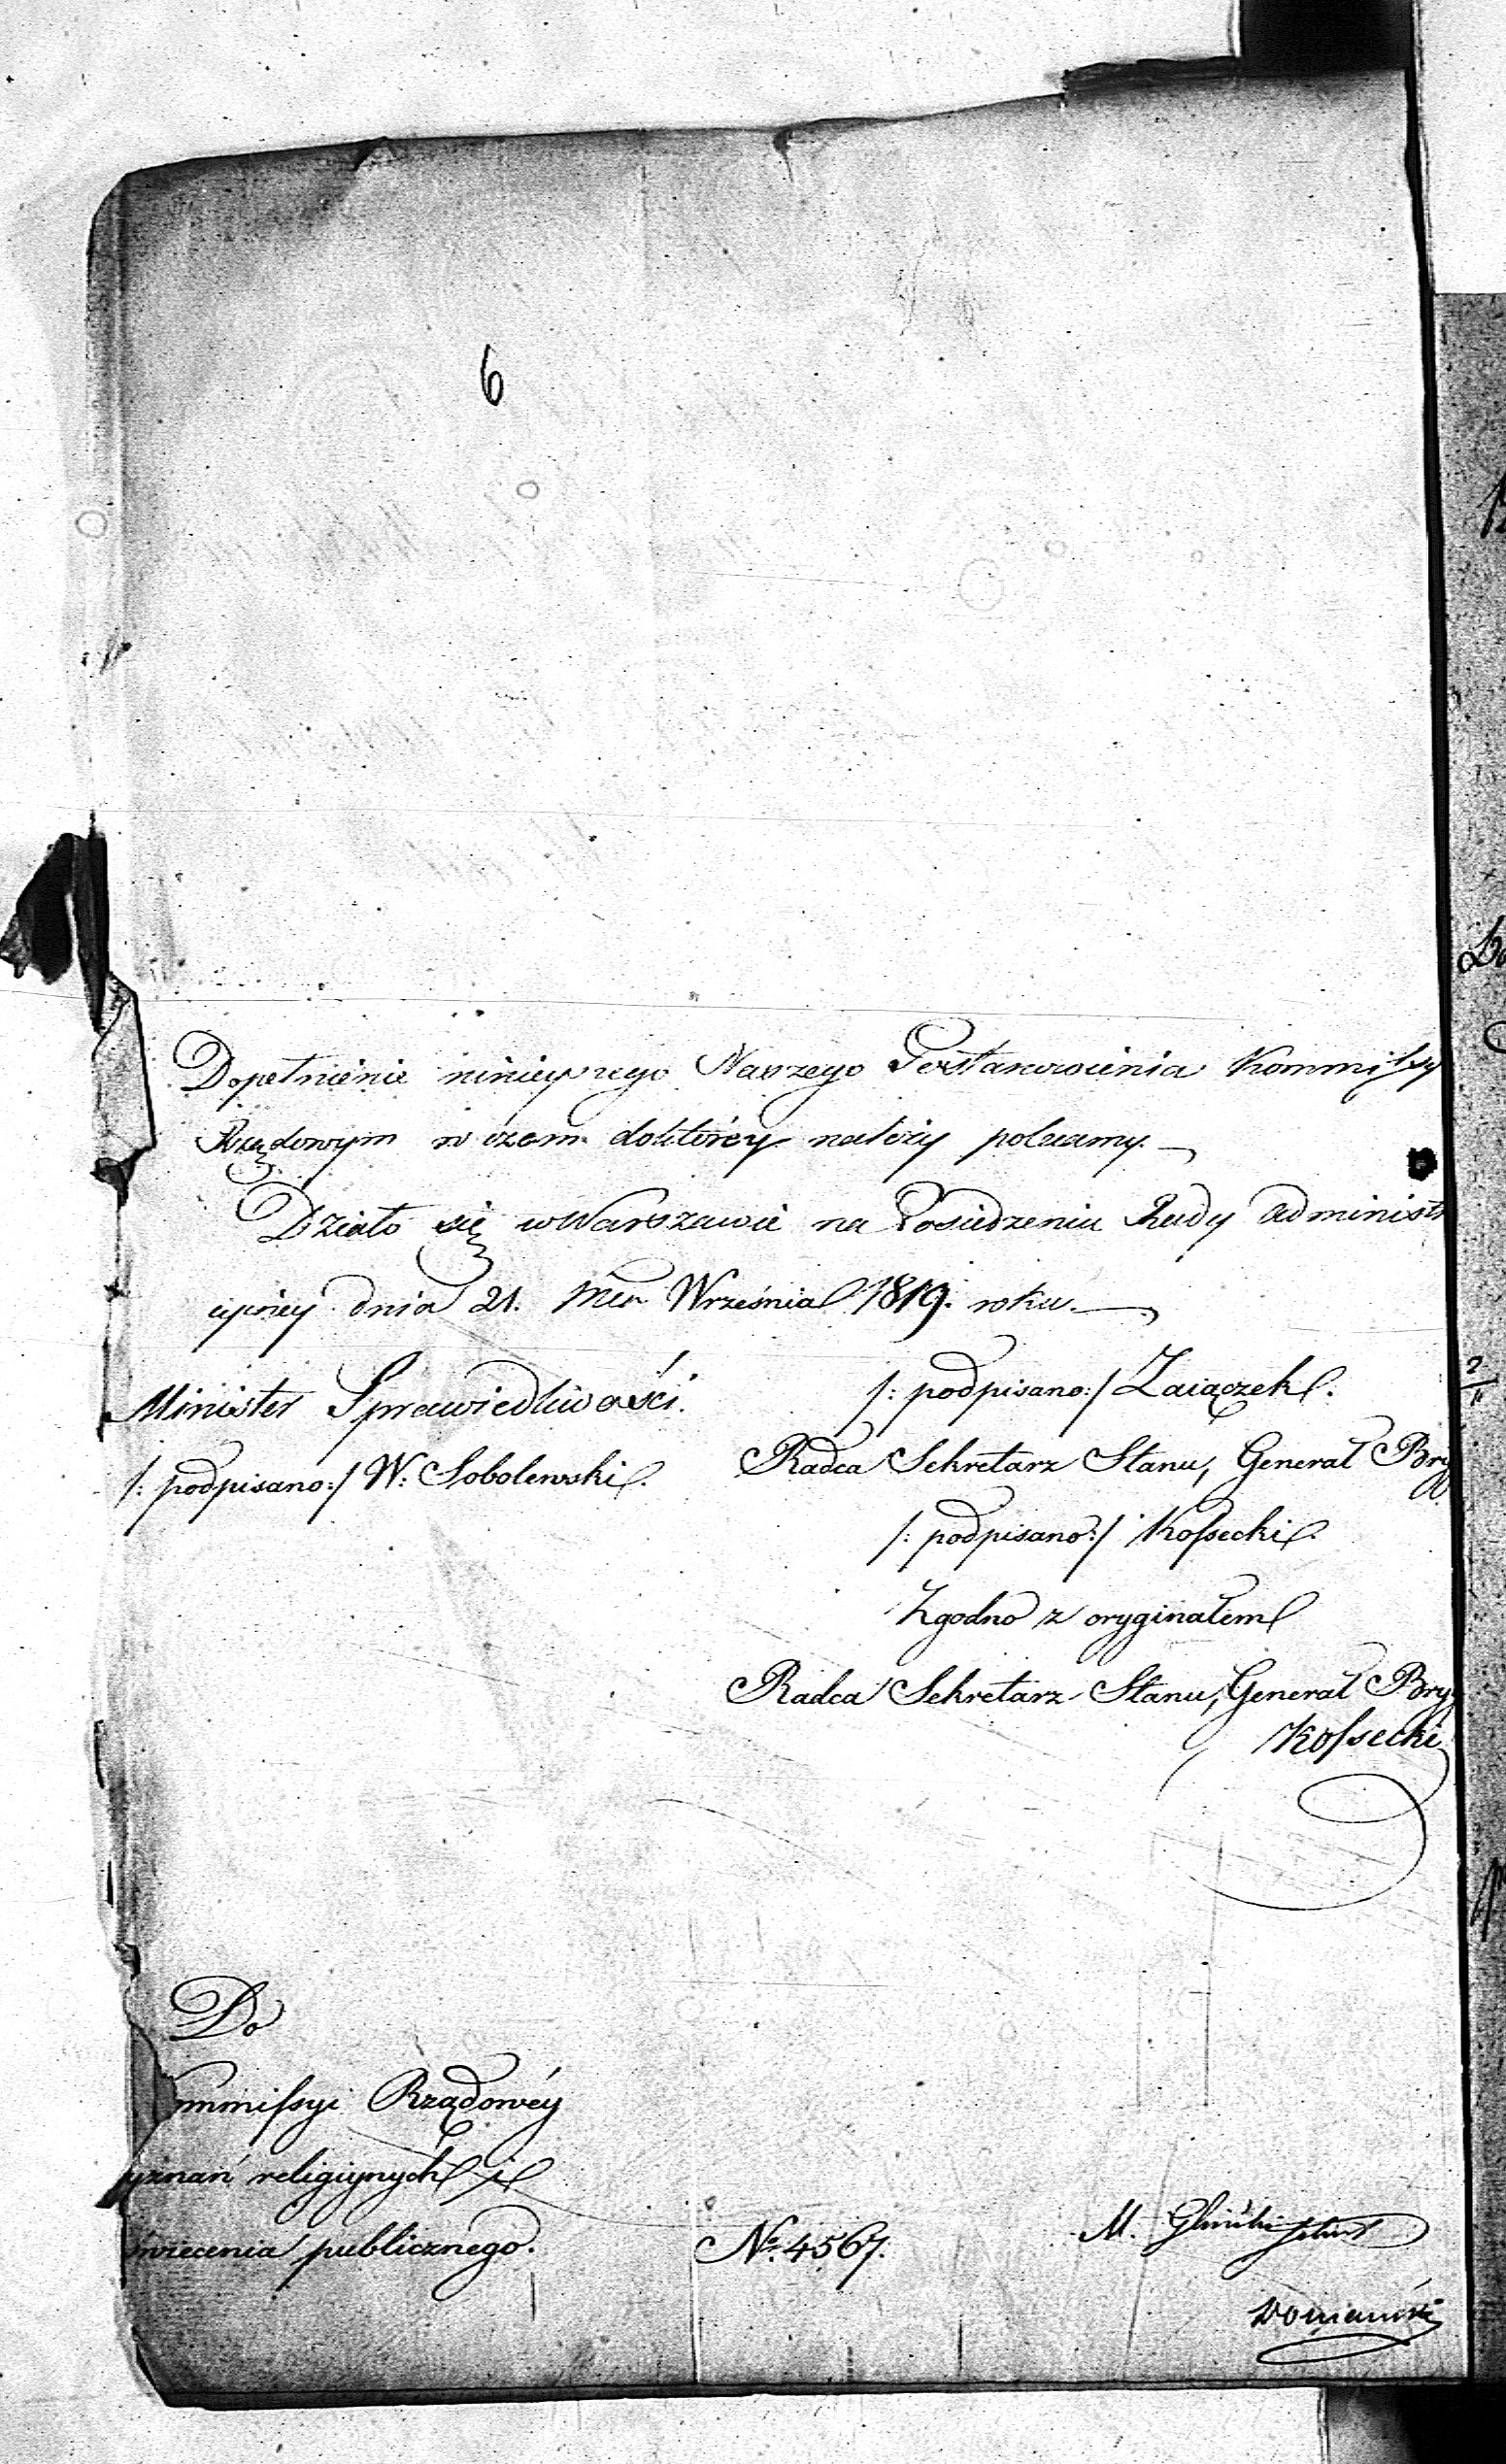 6
Dopełnienie ninieyszego Naszego Postanowienia Kommissy
Rządowym w czem doktórey należy polecamy.
Działo się w Warszawie na Posiedzeniu Rady administr
cyiney dnia 21. Mca Września 1819. roku.
Minister Sprawiedliwości.
/: podpisano:/ Zaiączek.
/: podpisano:/ W. Sobolewski.
Radca Sekretarz Stanu, Generał Bry
/: podpisano:/ Kossecki.
Zgodno z oryginałem
Radca Sekretarz Stanu, Generał Bry
Kossecki
Do
mmissyi Rządowéy
yznań religiynych i
świecenia publicznego.
No. 4567.
M.